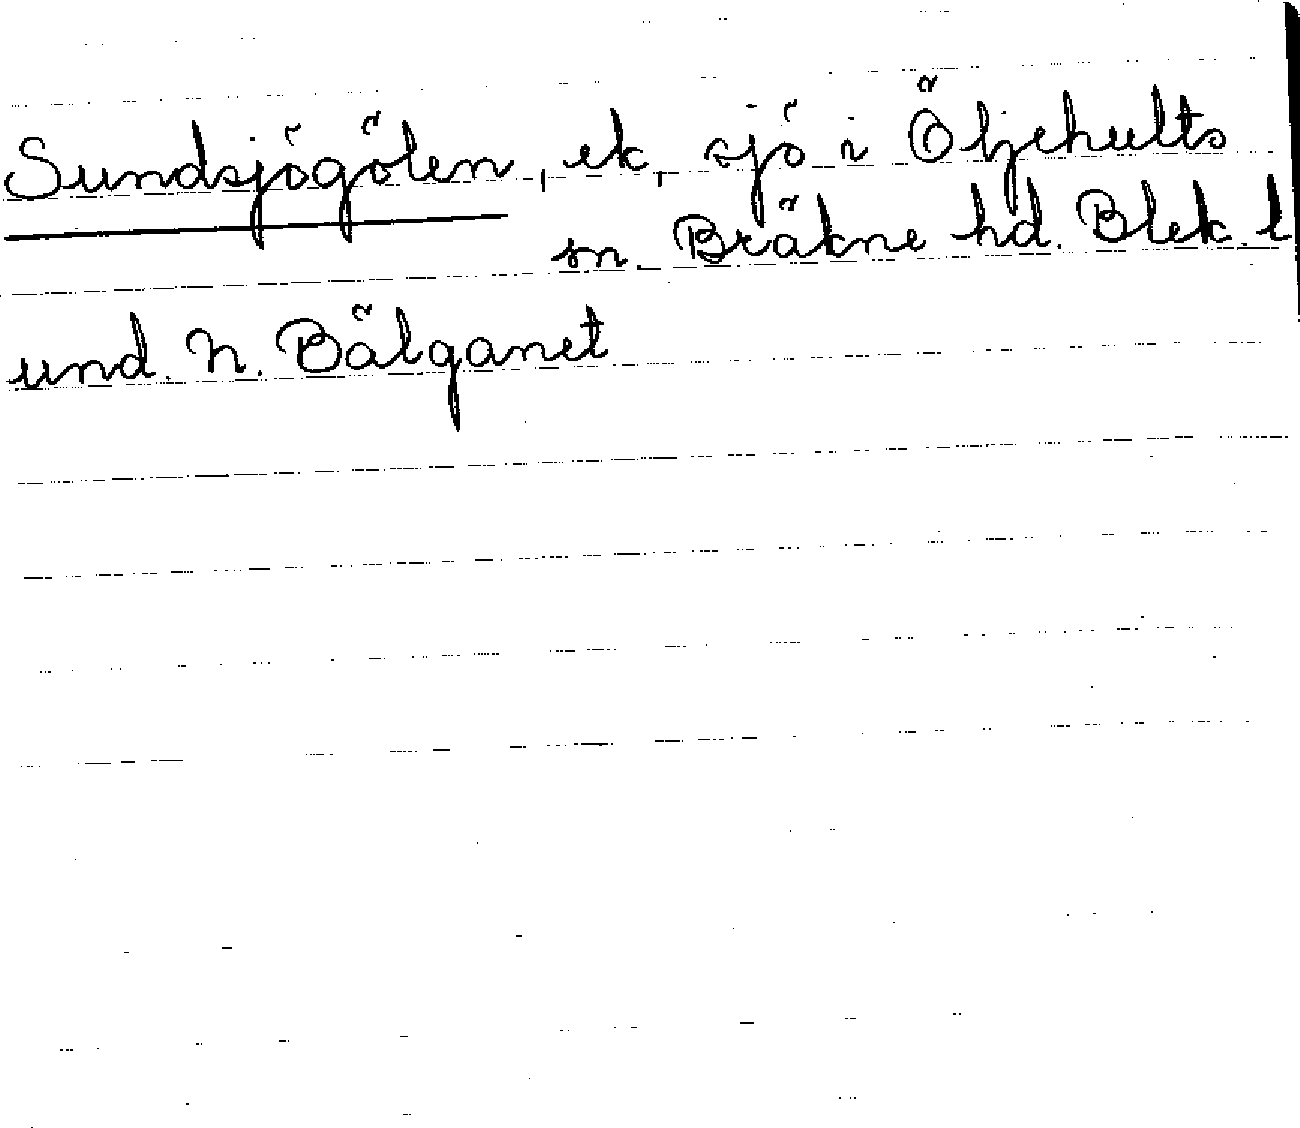 Sundsjögölen, ek, sjö i Öljehults
sn. Bräkne hd. Blek. l
und. N. Bälganet